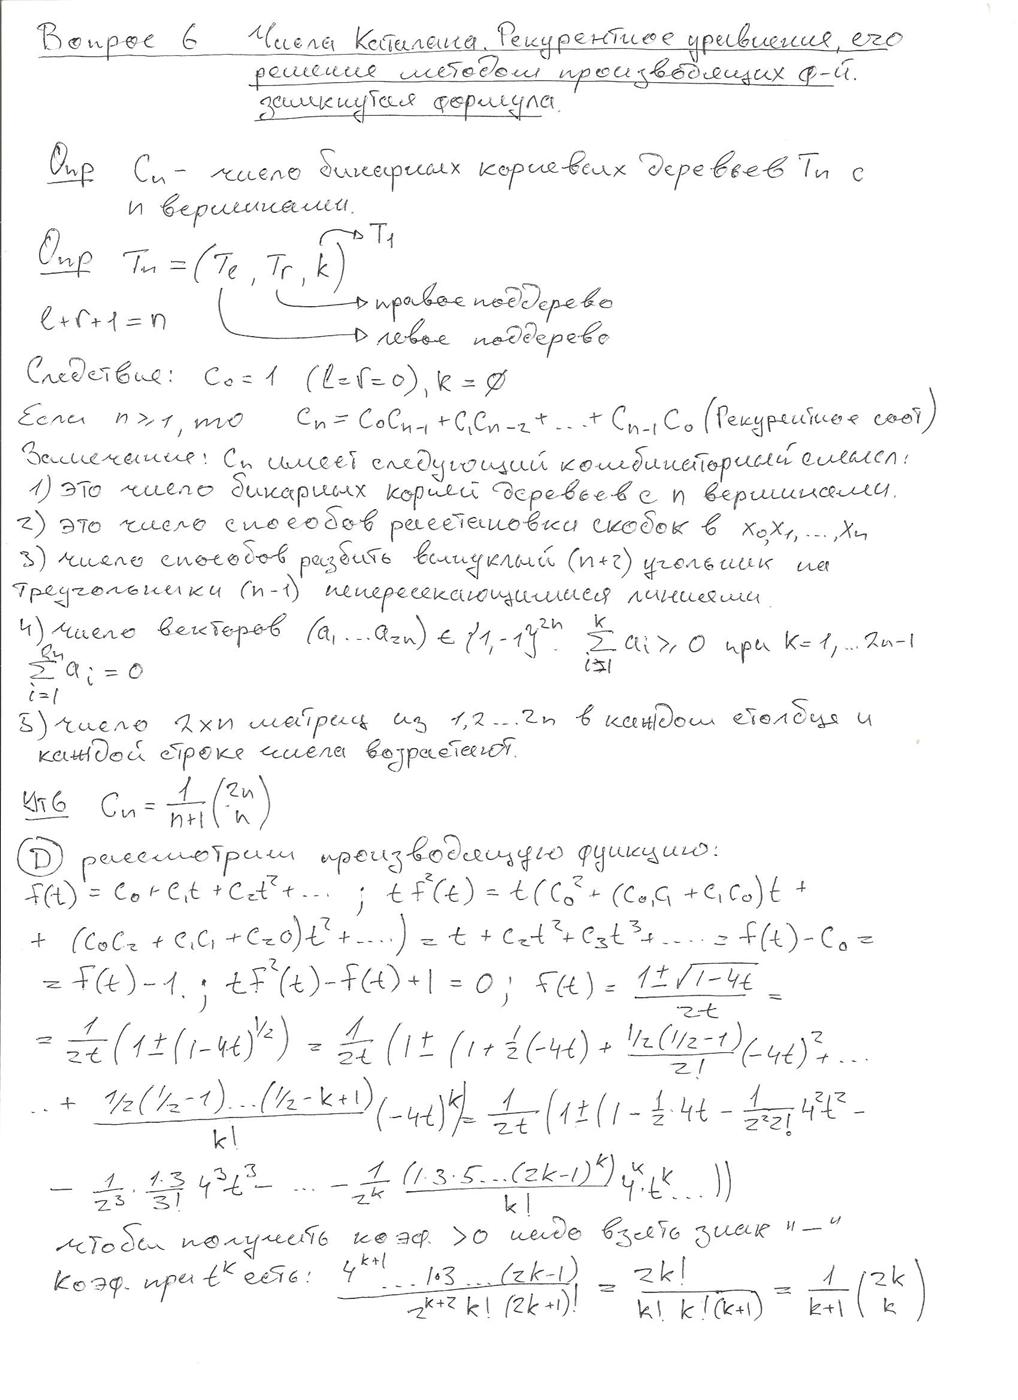 Вопрос 6 Числа Каталана. Рекурентное уравнение, его
решение методом производящих ф-й.
замкнутая формула.
Опр Cn - число бинарных корневых деревьев Tn с
n вершинами.
Опр Tn = (Te, Tr, k) → T1
→ правое поддерево
l+r+1=n
→ левое поддерево
Следствие: C0 = 1 (l=r=0), k = ∅
Если n≥1, то Cn = C0Cn-1 + C1Cn-2 + ... + Cn-1C0 (Рекурентное соот)
Замечание: Cn имеет следующий комбинаторный смысл:
1) это число бинарных корней деревьев с n вершинами.
2) это число способов расстановки скобок в x0,x1,...,xn
3) число способов разбить выпуклый (n+2) угольник на
треугольники (n-1) непересекающимися линиями
4) число векторов (a1...a2n) ∈ {1,-1}^2n. ∑_{i=1}^{k} ai ≥ 0 при k=1,...2n-1
∑_{i=1}^{2n} ai = 0
5) число 2×n матриц из 1,2...2n в каждом столбце и
каждой строке числа возрастают.
Cn = 1/(n+1) (2n n)
Ⓓ рассмотрим производящую функцию:
f(t) = C0 + C1t + C2t² + ... ; t f²(t) = t(C0² + (C0C1 + C1C0)t +
+ (C0C2 + C1C1 + C20)t² + ....) = t + C2t² + C3t³ + .... = f(t) - C0 =
= f(t) - 1. ; tf²(t) - f(t) + 1 = 0 ; f(t) = (1 ± √(1-4t))/2t =
= 1/2t (1 ± (1-4t)^1/2) = 1/2t (1 ± (1 + 1/2(-4t) + (1/2(1/2-1))/2! (-4t)² + ...
.. + (1/2(1/2-1)...(1/2-k+1))/k! (-4t)^k) = 1/2t (1 ± (1 - 1/2·4t - 1/(2²2!) 4²t² -
- 1/2³ · 1·3/3! 4³t³ - ... - 1/2^k (1·3·5...(2k-1)^k)/k! 4^k·t^k...))
чтобы получить коэф. >0 надо взять знак "—"
коэф. при t^k есть: (4^k+1 ... 1·3 ...(2k-1))/(2^k+2 k! (2k+1)!) = 2k!/(k! k!(k+1)) = 1/(k+1) (2k k)